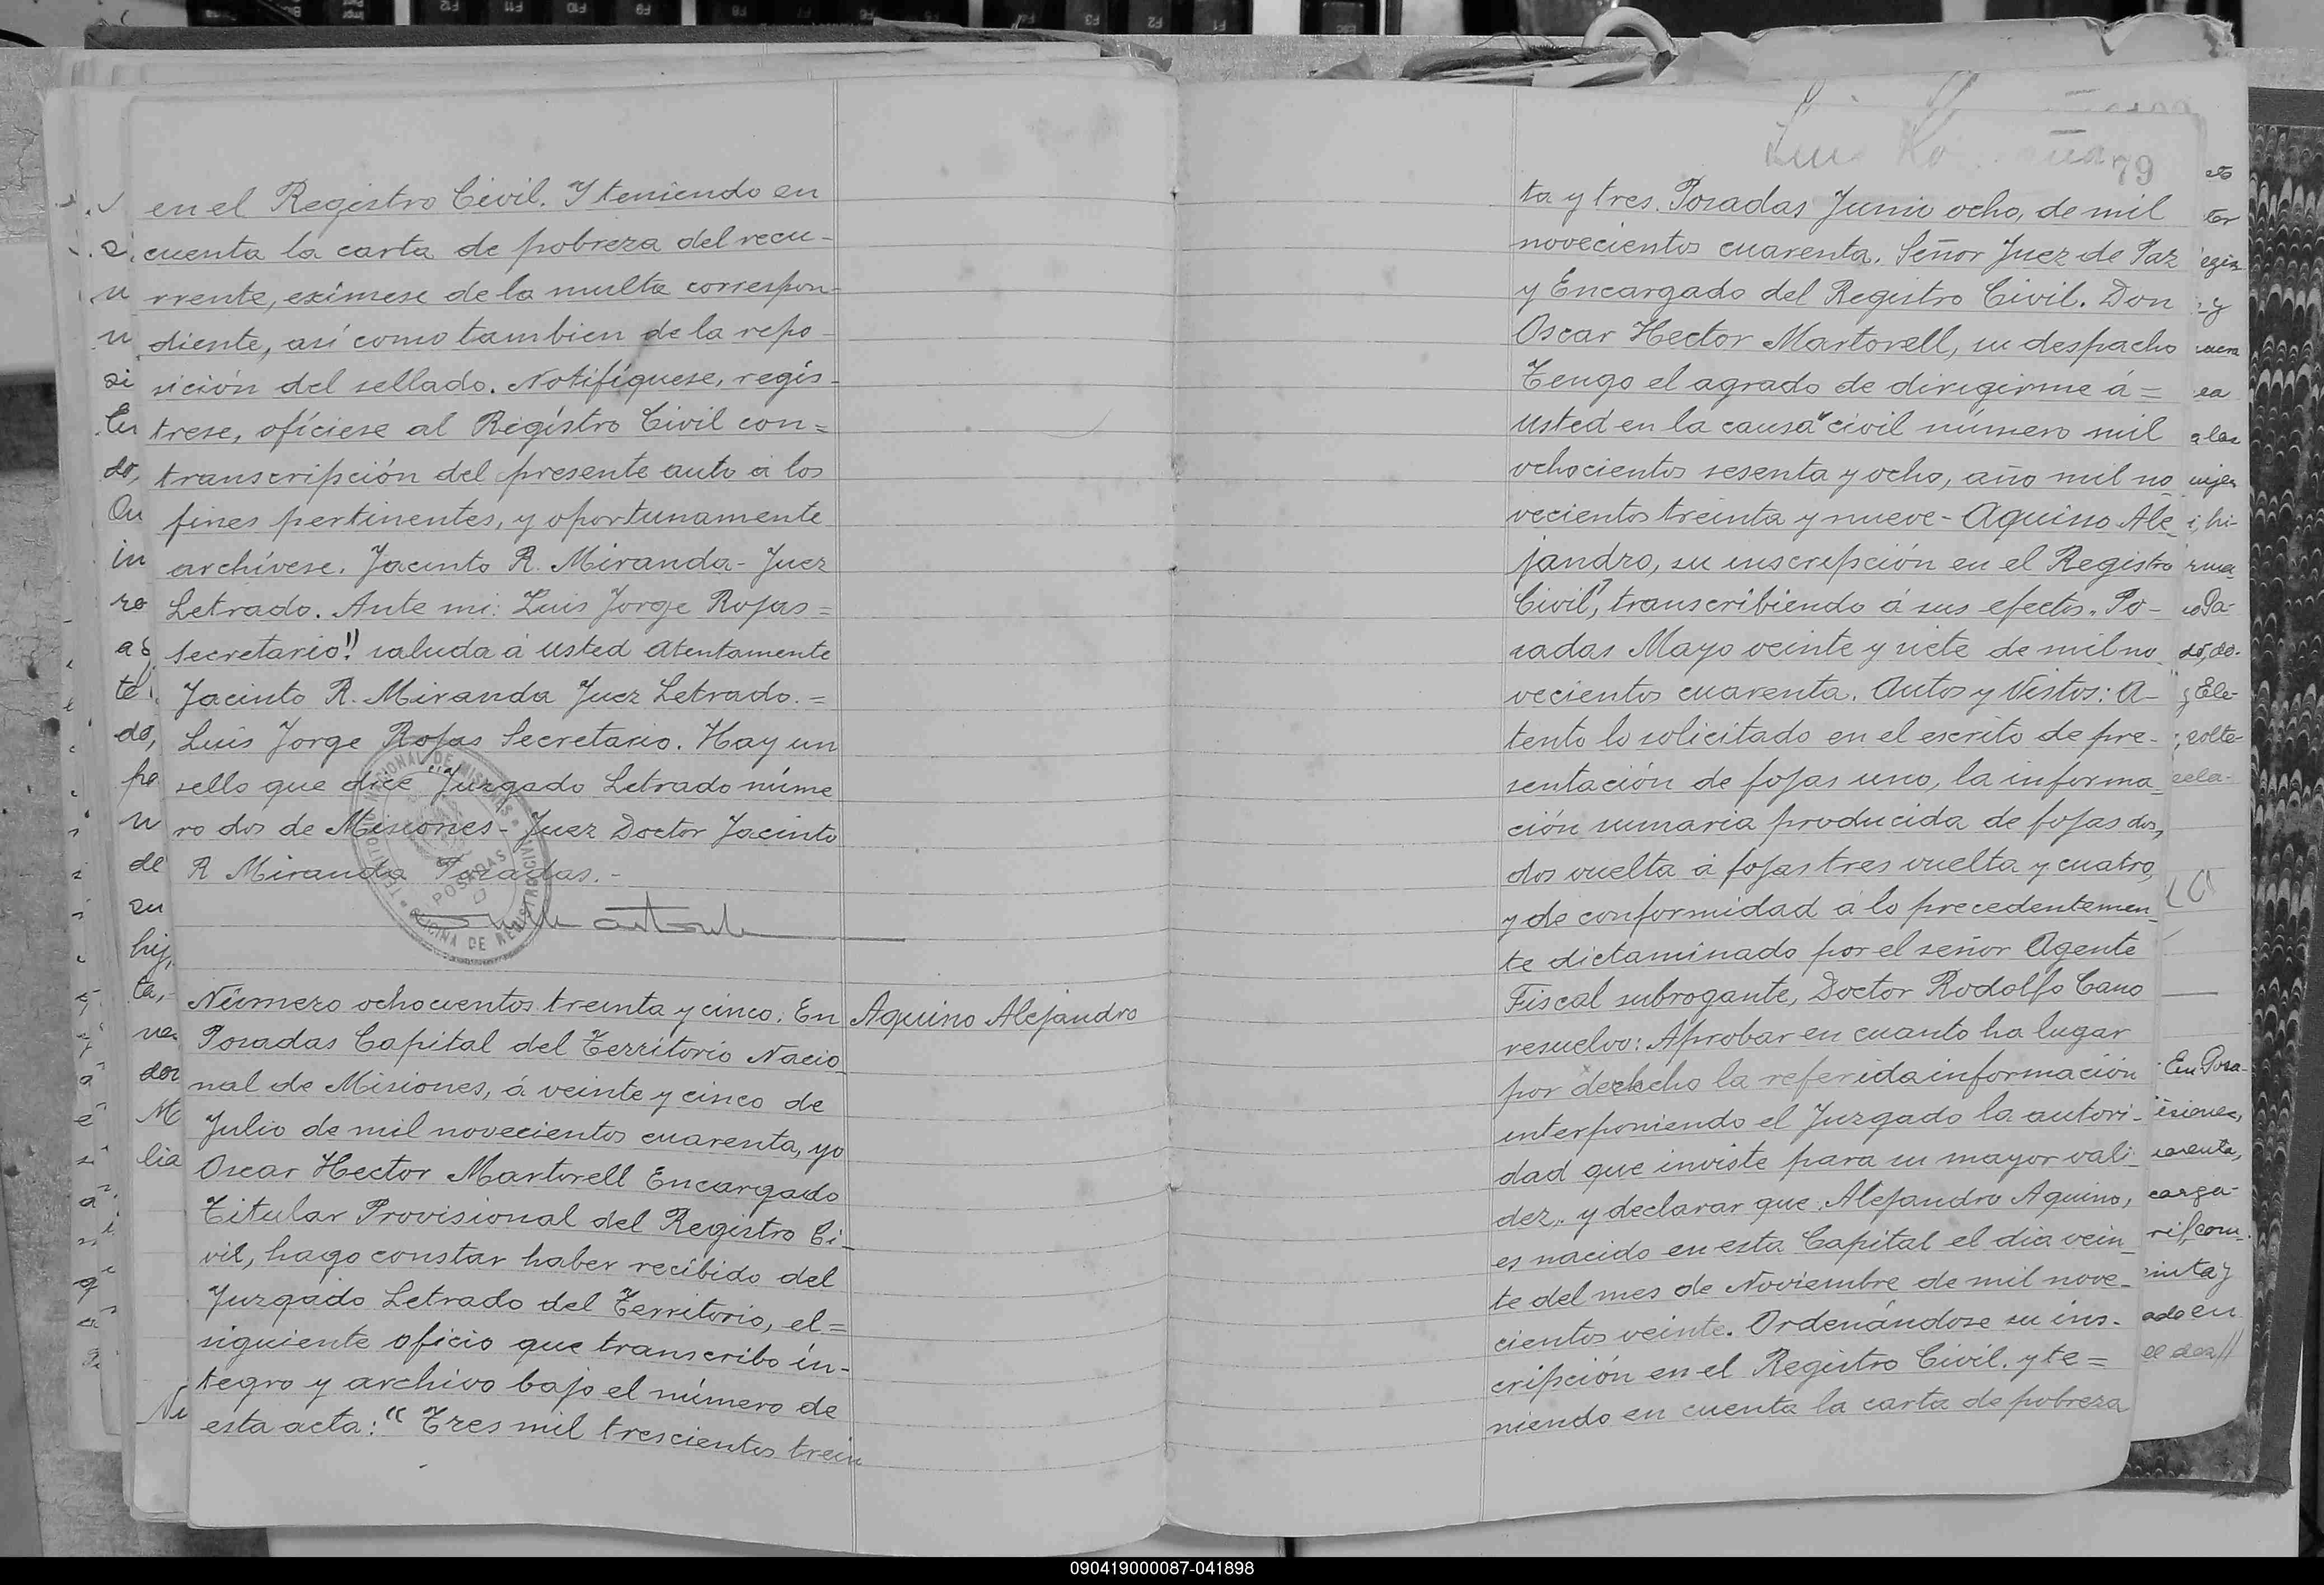 en el Registro Civil. Y teniendo en
cuenta la carta de pobreza del recu-
rrente, exímese de la multa correspon-
diente, así como tambien de la repo-
sición del sellado. Notifíquese, regís-
trese, ofíciese al Regístro Civil con=
transcripción del presente auto a los
fines pertinentes, y oportunamente
archívese. Jacinto R. Miranda - Juez
Letrado. Ante mi: Luis Jorge Rojas =
Secretario". saluda á usted atentamente
Jacinto R. Miranda Juez Letrado. =
Luis Jorge Rojas Secretario. Hay un
sello que dice "Juzgado Letrado núme
ro dos de Misiones - Juez Doctor Jacinto
R Miranda Posadas. -
Número ochocientos treinta y cinco. En
Posadas Capital del Territorio Nacio
nal de Misiones, á veinte y cinco de
Julio de mil novecientos cuarenta, yo
Oscar Hector Martorell Encargado
Titular Provisional del Registro Ci-
vil, hago constar haber recibido del
Juzgado Letrado del Territorio, el=
siguiente oficio que transcribo ín-
tegro y archivo bajo el número de
esta acta: "Tres mil trescientos trein
Aquino Alejandro
79
ta y tres. Posadas Junio ocho, de mil
novecientos cuarenta. Señor Juez de Paz
y Encargado del Registro Civil. Don
Oscar Hector Martorell, su despacho
Tengo el agrado de dirigirme á=
usted en la causa "civil número mil
ochocientos sesenta y ocho, año mil no
vecientos treinta y nueve - Aquino Ale
jandro, su inscripción en el Registro
Civil", transcribiendo á sus efectos. Po-
sadas Mayo veinte y siete de mil no
vecientos cuarenta. Autos y Vistos: A-
tento lo solicitado en el escrito de pre-
sentación de fojas uno, la informa
ción sumaria producida de fojas dos,
dos vuelta á fojas tres vuelta y cuatro,
y de conformidad á lo precedentemen
te dictaminado por el señor Agente
Fiscal subrogante, Doctor Rodolfo Cano
resuelvo: Aprobar en cuanto ha lugar
por derecho la referida información
interponiendo el Juzgado la autori-
dad que inviste para su mayor vali-
dez. y declarar que: Alejandro Aquino,
es nacido en esta Capital el día vein
te del mes de Noviembre de mil nove-
cientos veinte. Ordenándose su ins-
cripción en el Registro Civil. y te=
niendo en cuenta la carta de pobreza
090419000087-041898